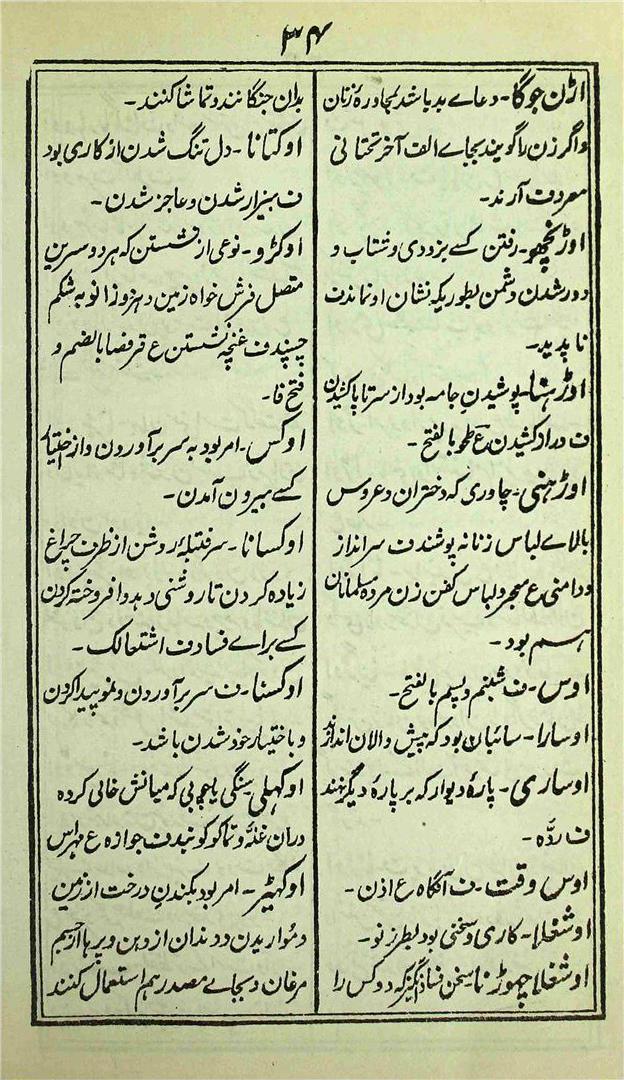 ۳۴
اڑن جوگا۔ دعاے بد باشد بمجاورهٔ زنان
واگر زن را گویند بجاے الف آخر تحتانی
معروف آرند۔
اوڑنچھو۔ رفتن کسے بزودی و شتاب و
دور شدن دشمن بطوریکه نشان او نماند ف
ناپدید۔
اوڑھنا۔ پوشیدن جامه بود از سر تا پا کشیدن
ف دراد کشیدن ع طحو بالفتح۔
اوڑھنی۔ چادری که دختران و عروس
بالاے لباس زنانه پوشند ف سرانداز
و دامنی ع معجر و لباس کفن زن مرده مسلمانان
هم بود۔
اوس۔ ف شبنم و پسم بالفتح۔
اوسارا۔ سائبان بود که پیش دالان اندازند
اوساری۔ پارهٔ دیوار که بر پارهٔ دیگر نهند
ف ردّه۔
اوس وقت۔ ف آنگاه ع اذن۔
اوشغلا۔ کاری و سخنی بود بطرز نو۔
اوشغلا چھوڑنا سخن فساد انگیز که دو کس را
بدان جنگانند و تماشا کنند۔
اوکتانا۔ دل تنگ شدن از کاری بود
ف بیزار شدن و عاجز شدن۔
اوکڑو۔ نوعی از نشستن که هر دو سرین
متصل فرش خواه زمین و هر دو زانو به شکم
چسپند ف غنچه نشستن ع قرفصا بالضم و
فتح فا۔
اوکس۔ امر بود به سر برآوردن و از اختیار
کسے بیرون آمدن۔
اوکسانا۔ سر فتیلهٔ روشن از ظرف چراغ
زیاده کردن تا روشنی دهد و افروخته کردن
کسے براے فساد ف اشتعالک۔
اوکسنا۔ ف سر برآوردن و نمو پیدا کردن
و باختیار خود شدن باشد۔
اوکھلی سنگی یا چوبی که میانش خالی کرده
دران غله و تماکو کوبند ف جوازه ع مهراس
اوکھیڑ۔ امر بود بکندن درخت از زمین
و موا ریدن و دندان از دهن و پرها از جسم
مرغان و بجاے مصدر هم استعمال کنند